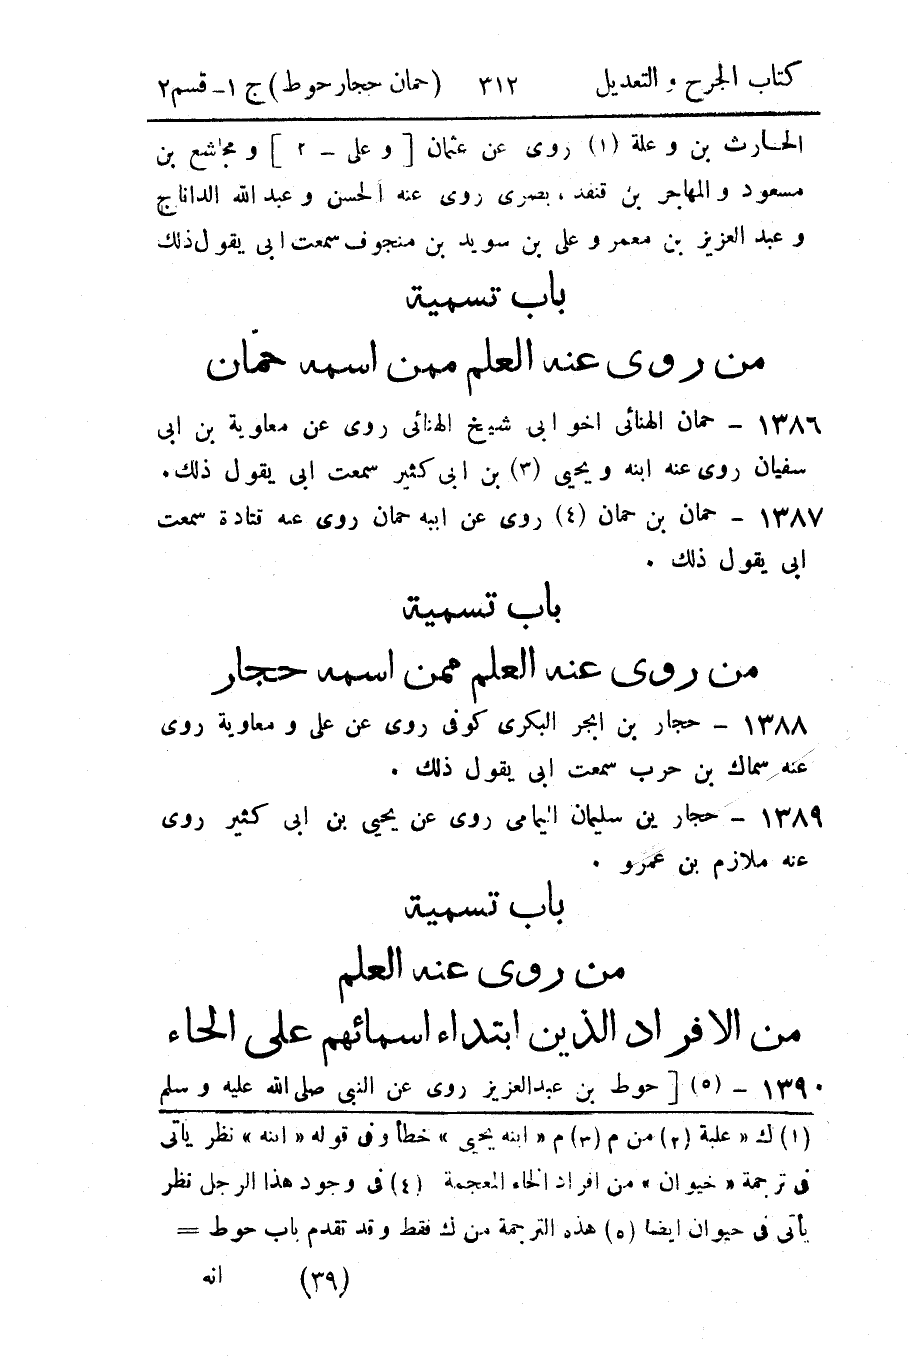 كتاب الجرح و التعديل ٣١٢ (حمان حجار حوط) ج ١ - قسم ٢
الحارث بن وعلة (١) روى عن عثمان [ و على - ٢ ] و مجاشع بن
مسعود و المهاجر بن قنفد ، بصرى روى عنه الحسن و عبد الله الداناج
و عبد العزيز بن معمر و على بن سويد بن منجوف سمعت ابى يقول ذلك
باب تسمية
من روى عنه العلم ممن اسمه حمّان
١٣٨٦ - حمان الهنائى اخو ابى شيخ الهنائى روى عن معاوية بن ابى
سفيان روى عنه ابنه و يحيى (٣) بن ابى كثير سمعت ابى يقول ذلك .
١٣٨٧ - حمان بن حمان (٤) روى عن ابيه حمان روى عنه قتادة سمعت
ابى يقول ذلك .
باب تسمية
من روى عنه العلم ممن اسمه حجار
١٣٨٨ - حجار بن ابجر البكرى كوفى روى عن على و معاوية روى
عنه سماك بن حرب سمعت ابى يقول ذلك .
١٣٨٩ - حجار بن سليمان اليمامى روى عن يحيى بن ابى كثير روى
عنه ملازم بن عمرو .
باب تسمية
من روى عنه العلم
من الافراد الذين ابتداء اسمائهم على الحاء
١٣٩٠ - (٥) [ حوط بن عبدالعزيز روى عن النبى صلى الله عليه و سلم
(١) ك « علبة (٢) من م (٣) م « ابنه يحيى » خطأ وفى قوله « ابنه » نظر يأتى
فى ترجمة « خيوان » من افراد الخاء المعجمة (٤) فى وجود هذا الرجل نظر
يأتى فى حيوان ايضا (٥) هذه الترجمة من ك فقط وقد تقدم باب حوط =
(٣٩) انه